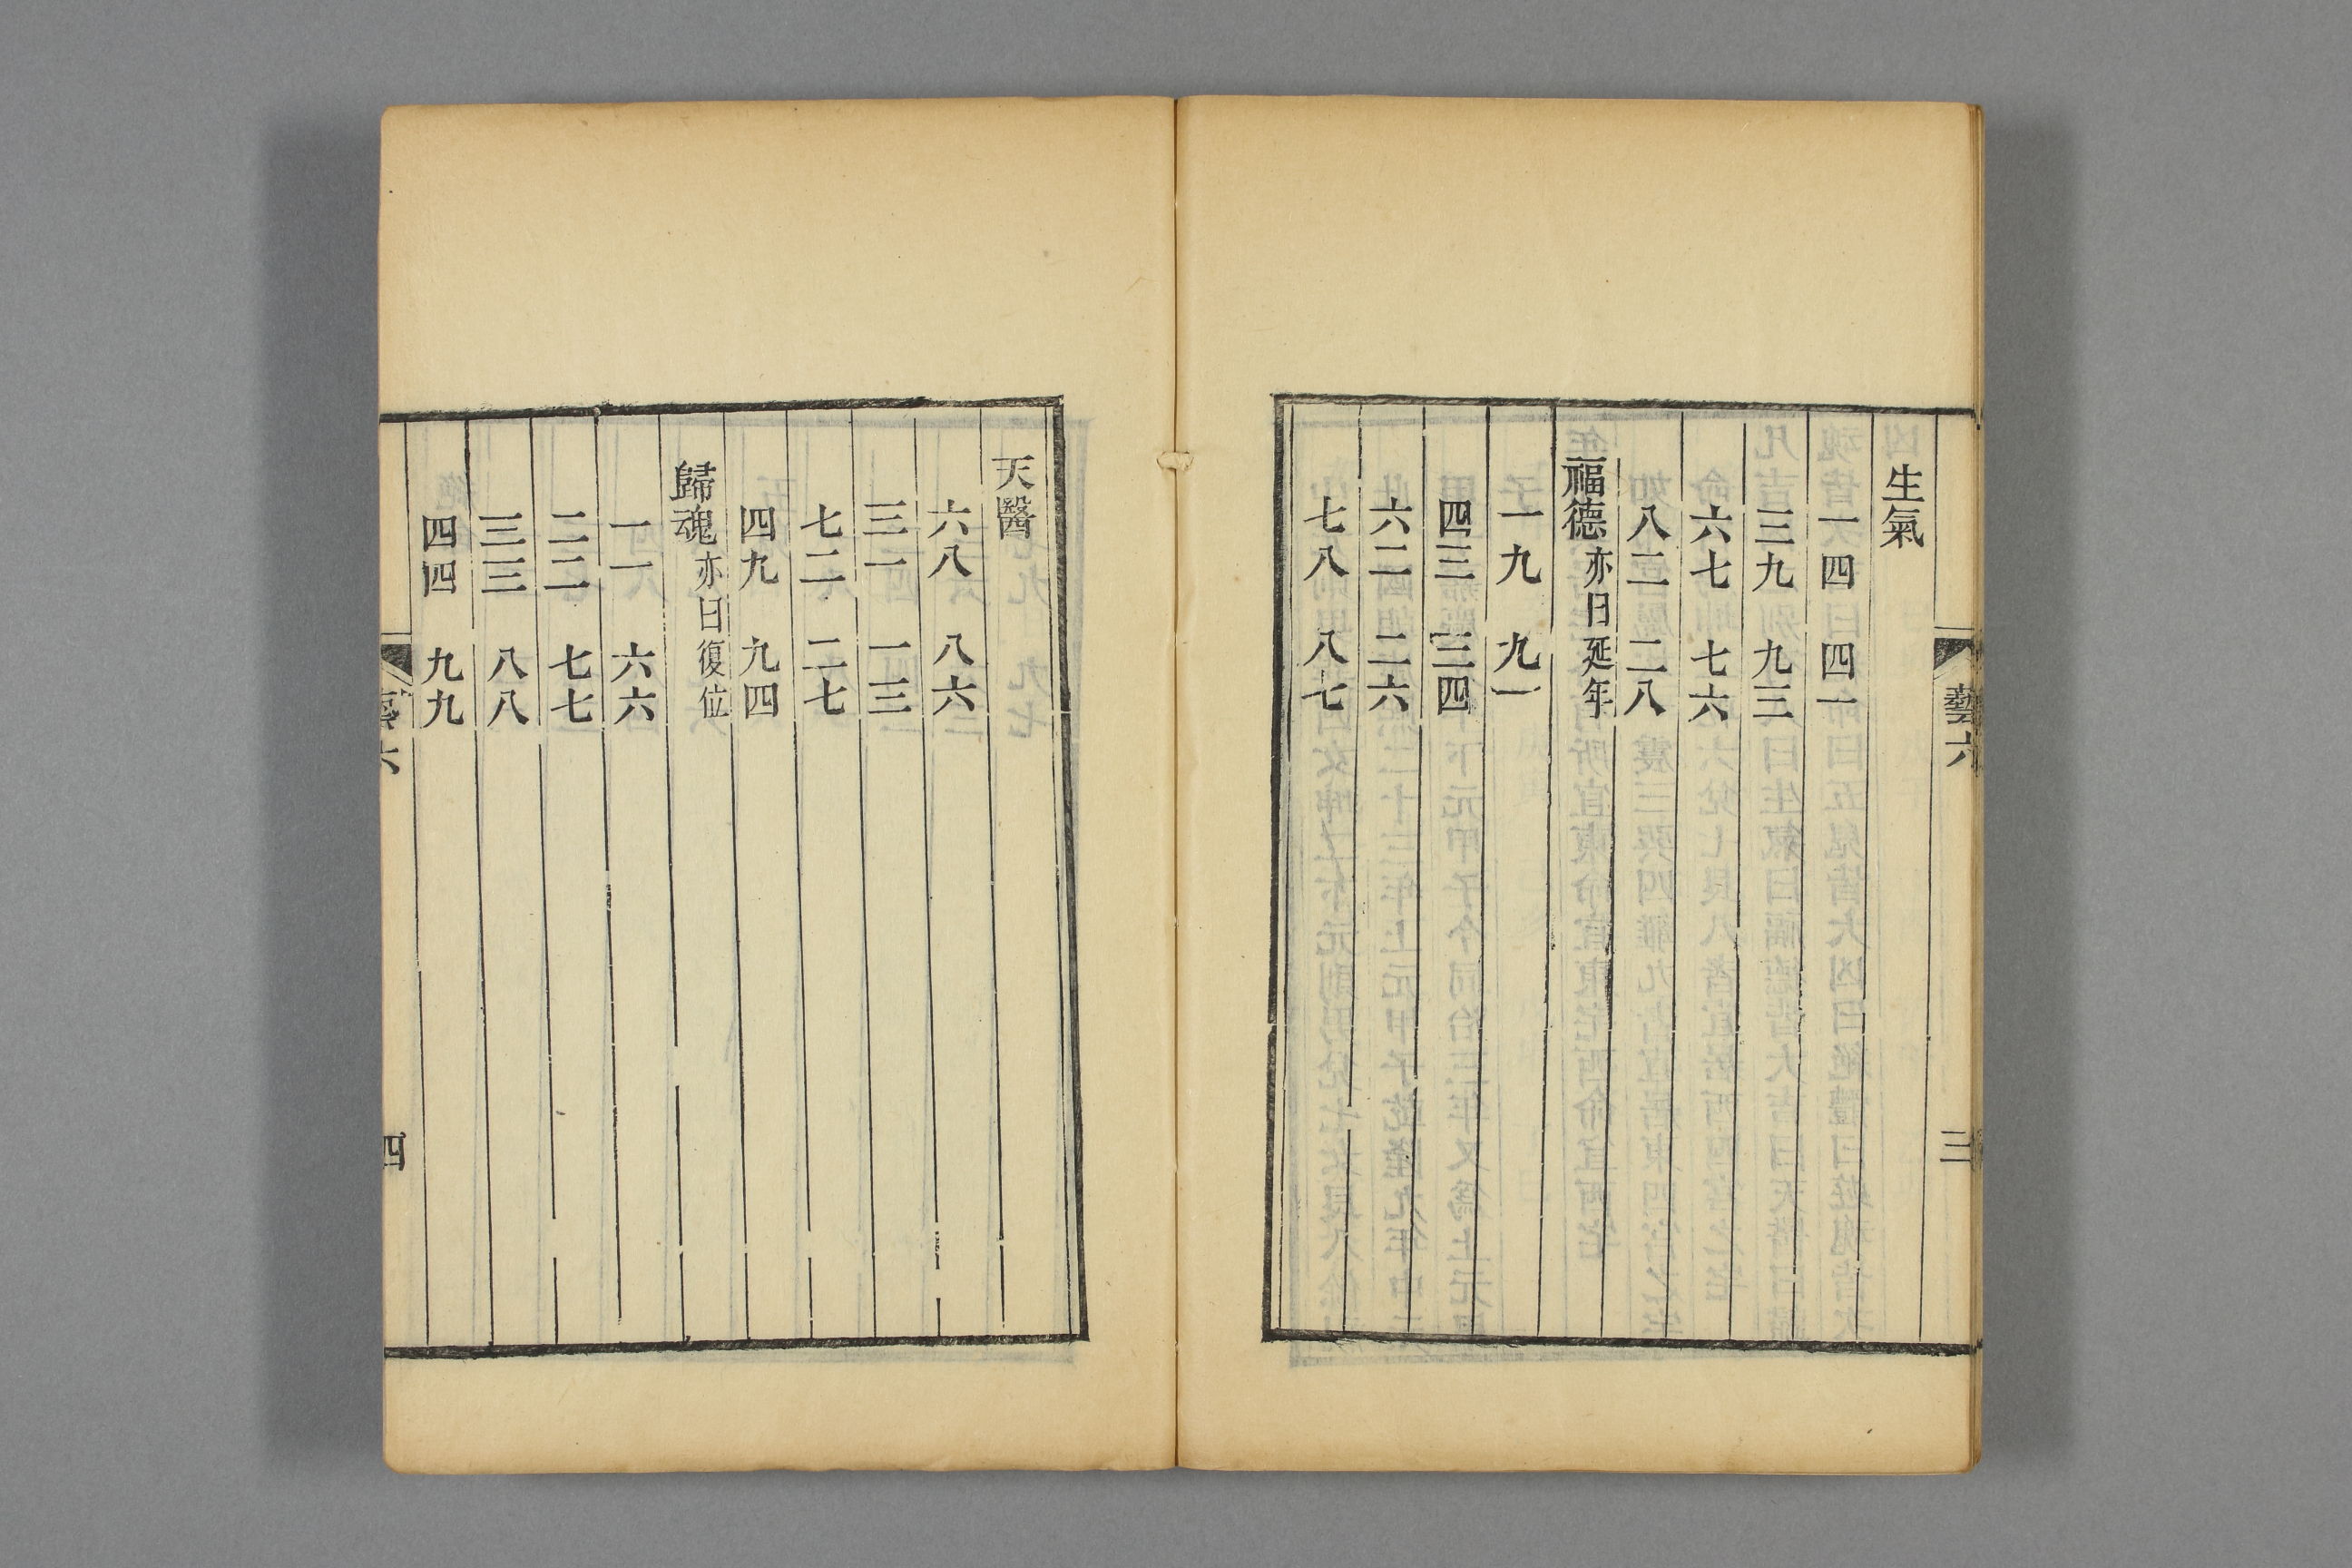 藝六
三
生氣
一四　四一
三九　九三
六七　七六
八二　二八
福德亦曰延年
一九　九一
四三　三四
六二　二六
七八　八七
天醫
六八　八六
三一　一三
七二　二七
四九　九四
歸魂亦曰復位
一一　六六
二二　七七
三三　八八
四四　九九
藝六
四